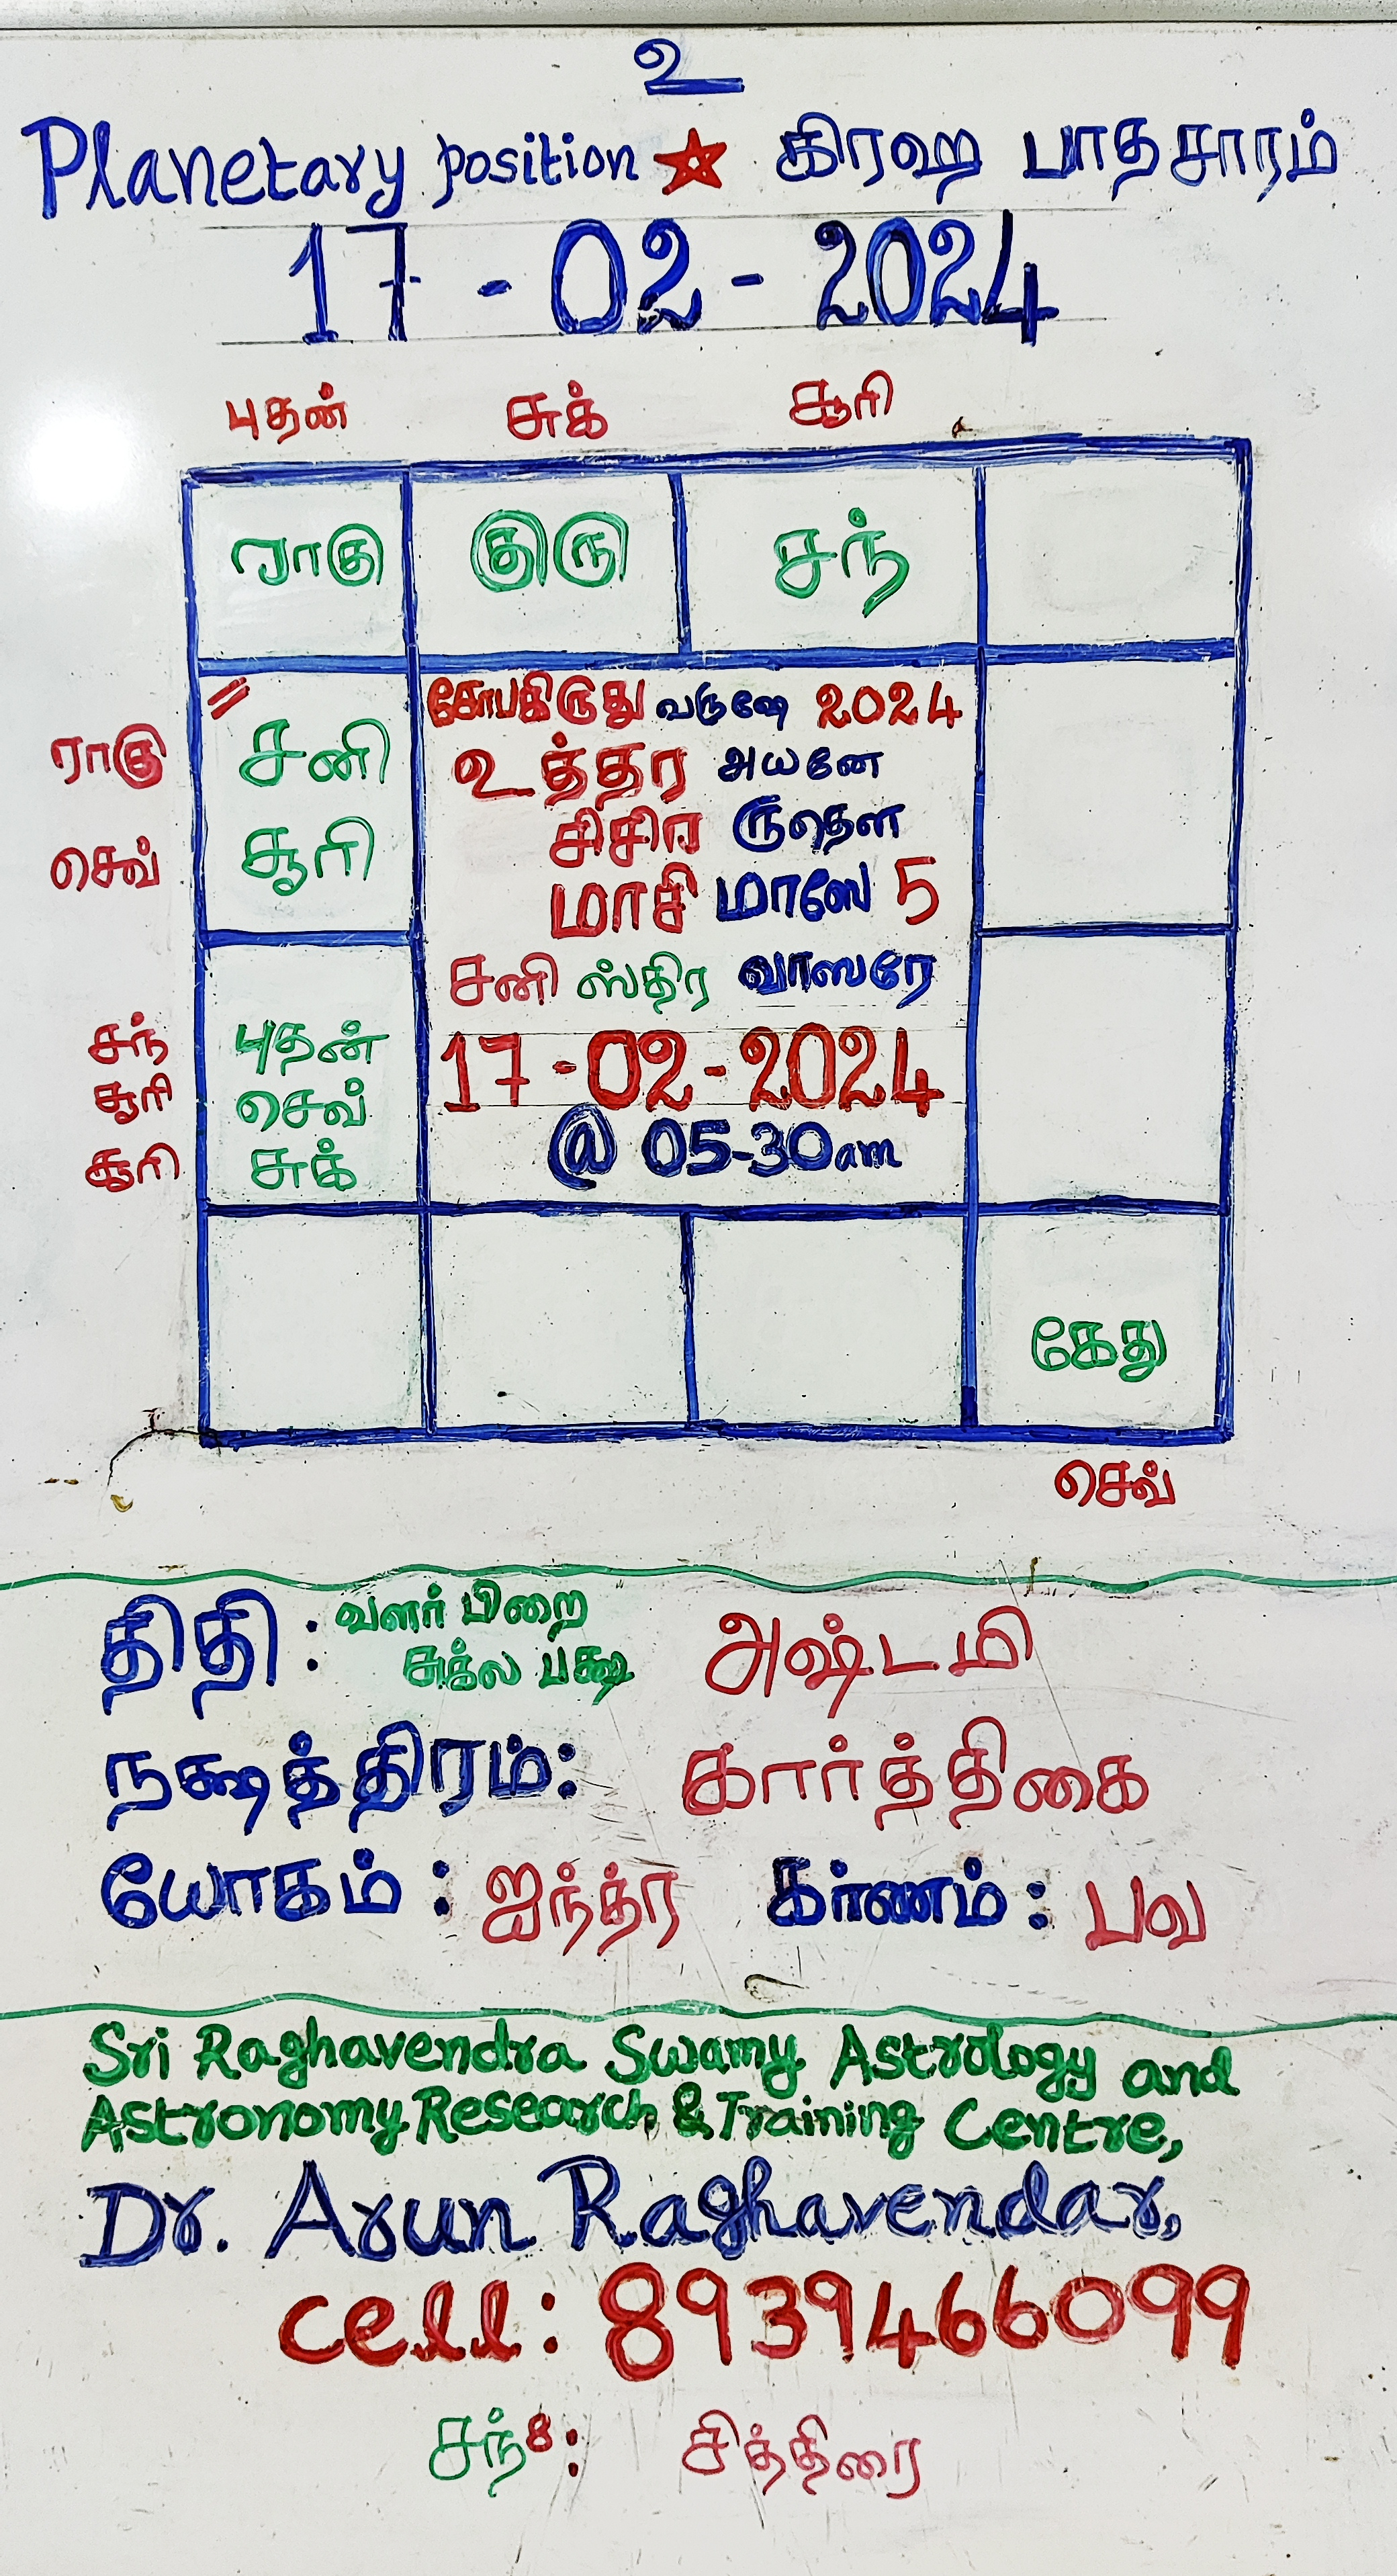 உ
Planetary position கிரஹ பாதசாரம்
17 - 02 - 2024
புதன் சுக் சூரி
ராகு குரு சந்
சோபகிருது வருஷே 2024
ராகு சனி உத்தர அயனே
செவ் சூரி சிசிர ருதௌ
மாசி மாஸே 5
சனி ஸ்திர வாஸரே
சந் புதன் 17-02-2024
சூரி செவ் @ 05-30am
சூரி சுக்
கேது
செவ்
திதி : வளர் பிறை அஷ்டமி
சுக்ல பக்ஷ
நக்ஷத்திரம்: கார்த்திகை
யோகம் : ஐந்த்ர கரணம் : பவ
Sri Raghavendra Swamy Astrology and
Astronomy Research & Training Centre,
Dr. Arun Raghavendar,
cell: 8939466099
சந்8: சித்திரை